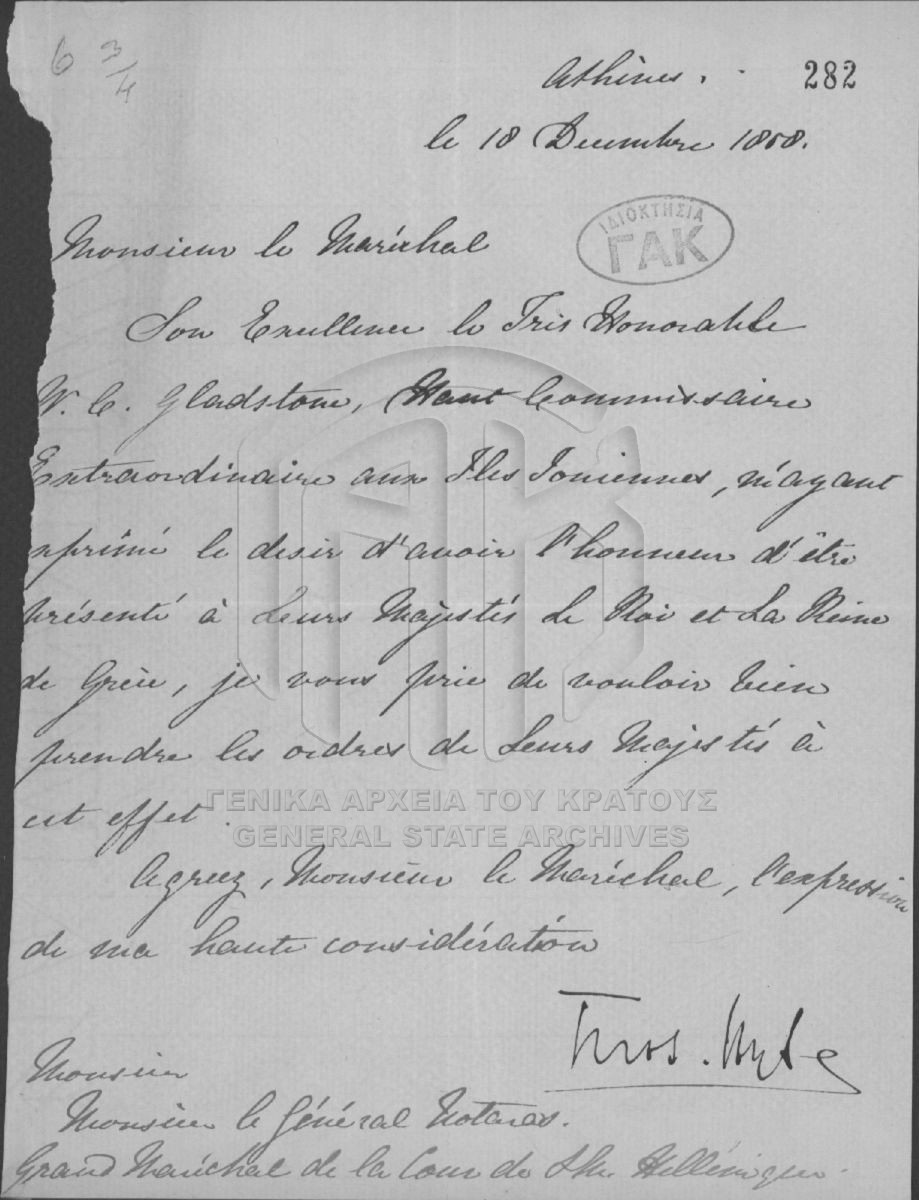 6 3/4
Athènes.
282
le 18 Decembre 1858.
ΙΔΙΟΚΤΗΣΙΑ
ΓΑΚ
Monsieur le Maréchal
Son Excellence le Très Honorable
W. E. Gladstone, Haut Commissaire
Extraordinaire aux Iles Ioniennes, m'ayant
exprimé le desir d'avoir l'honneur d'être
présenté à Leurs Majestés Le Roi et La Reine
de Grèce, je vous prie de vouloir bien
prendre les ordres de Leurs Majestés à
cet effet.
ΓΕΝΙΚΑ ΑΡΧΕΙΑ ΤΟΥ ΚΡΑΤΟΥΣ
GENERAL STATE ARCHIVES
Agreez, Monsieur le Maréchal, l'expression
de ma haute considération
Thos. Wyse
Monsieur
Monsieur le Général Notaras.
Grand Maréchal de la Cour de